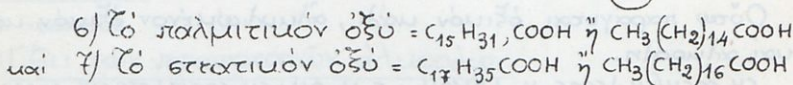 6) Τό παλμιτικόν ὀξύ = C₁₅H₃₁,COOH ἤ CH₃(CH₂)₁₄COOH
καί 7) Τό στεατικόν ὀξύ = C₁₇H₃₅COOH ἤ CH₃(CH₂)₁₆COOH